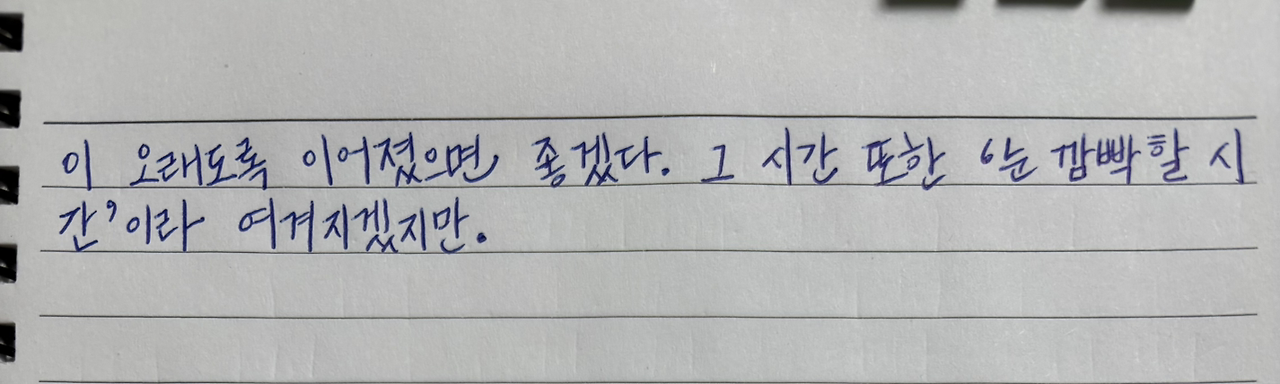 이 오래도록 이어졌으면 좋겠다. 그 시간 또한 '눈 깜빡할 시
간'이라 여겨지겠지만.